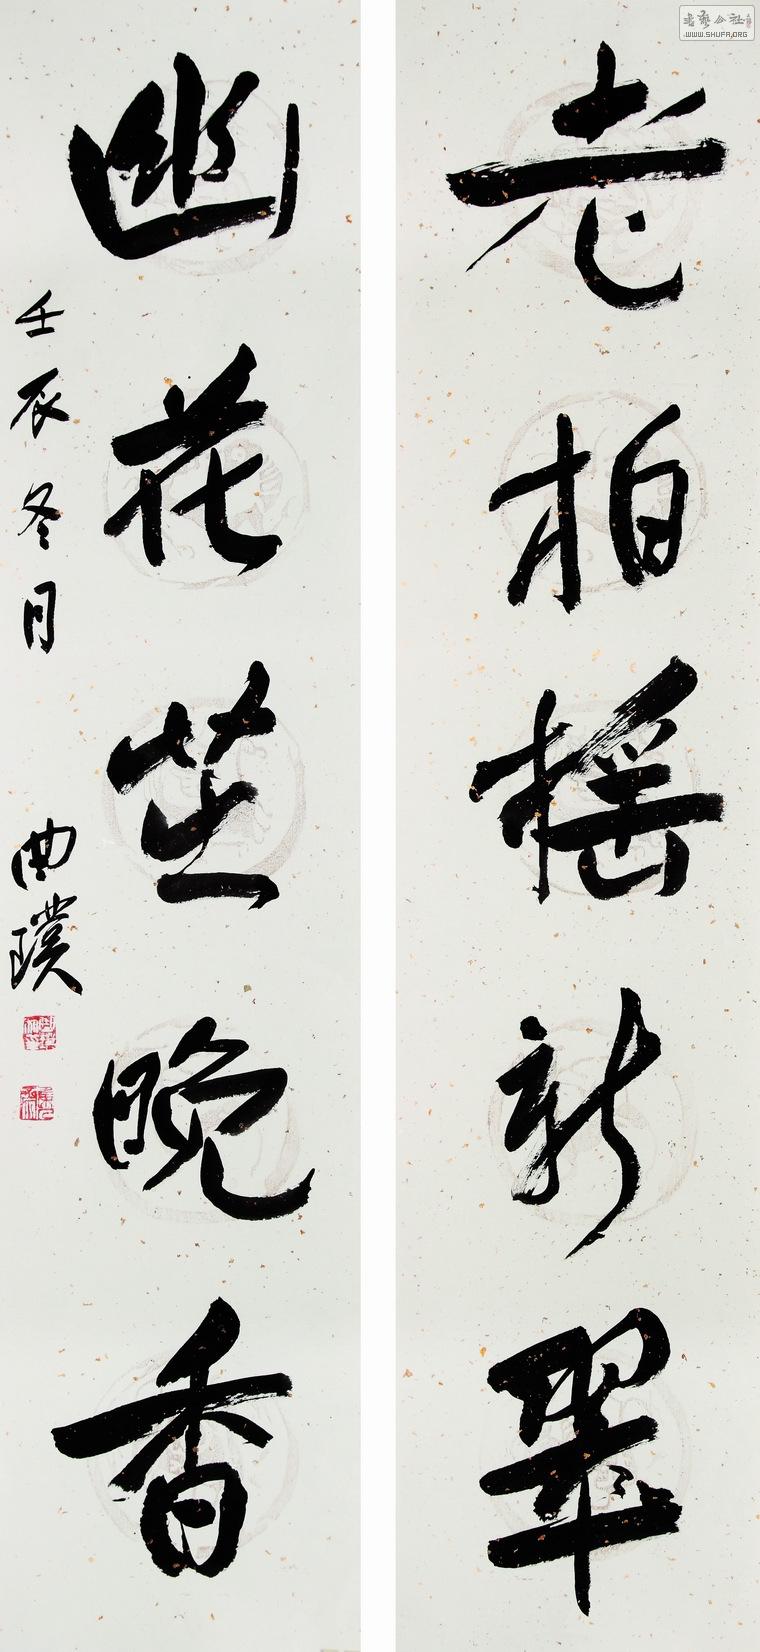 老柏摇新翠
幽花茁晚香
壬辰冬月 曲璞
書藝公社
WWW.SHUFA.ORG